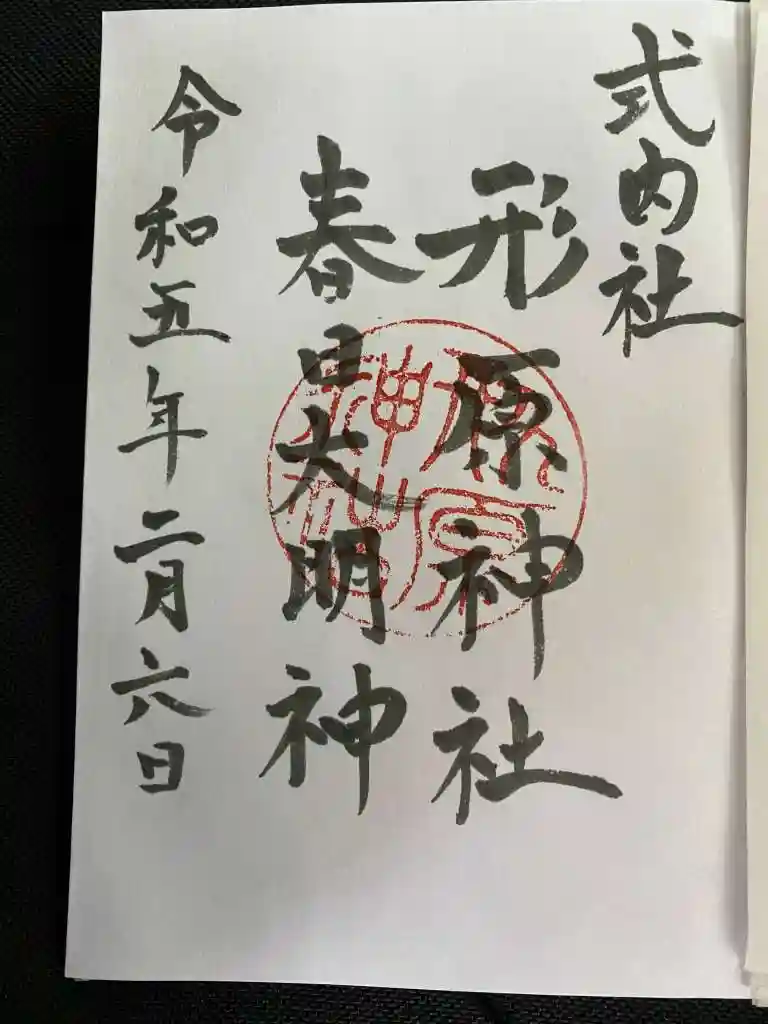 式内社
形原神社
春日大明神
令和五年二月六日
形原
神社